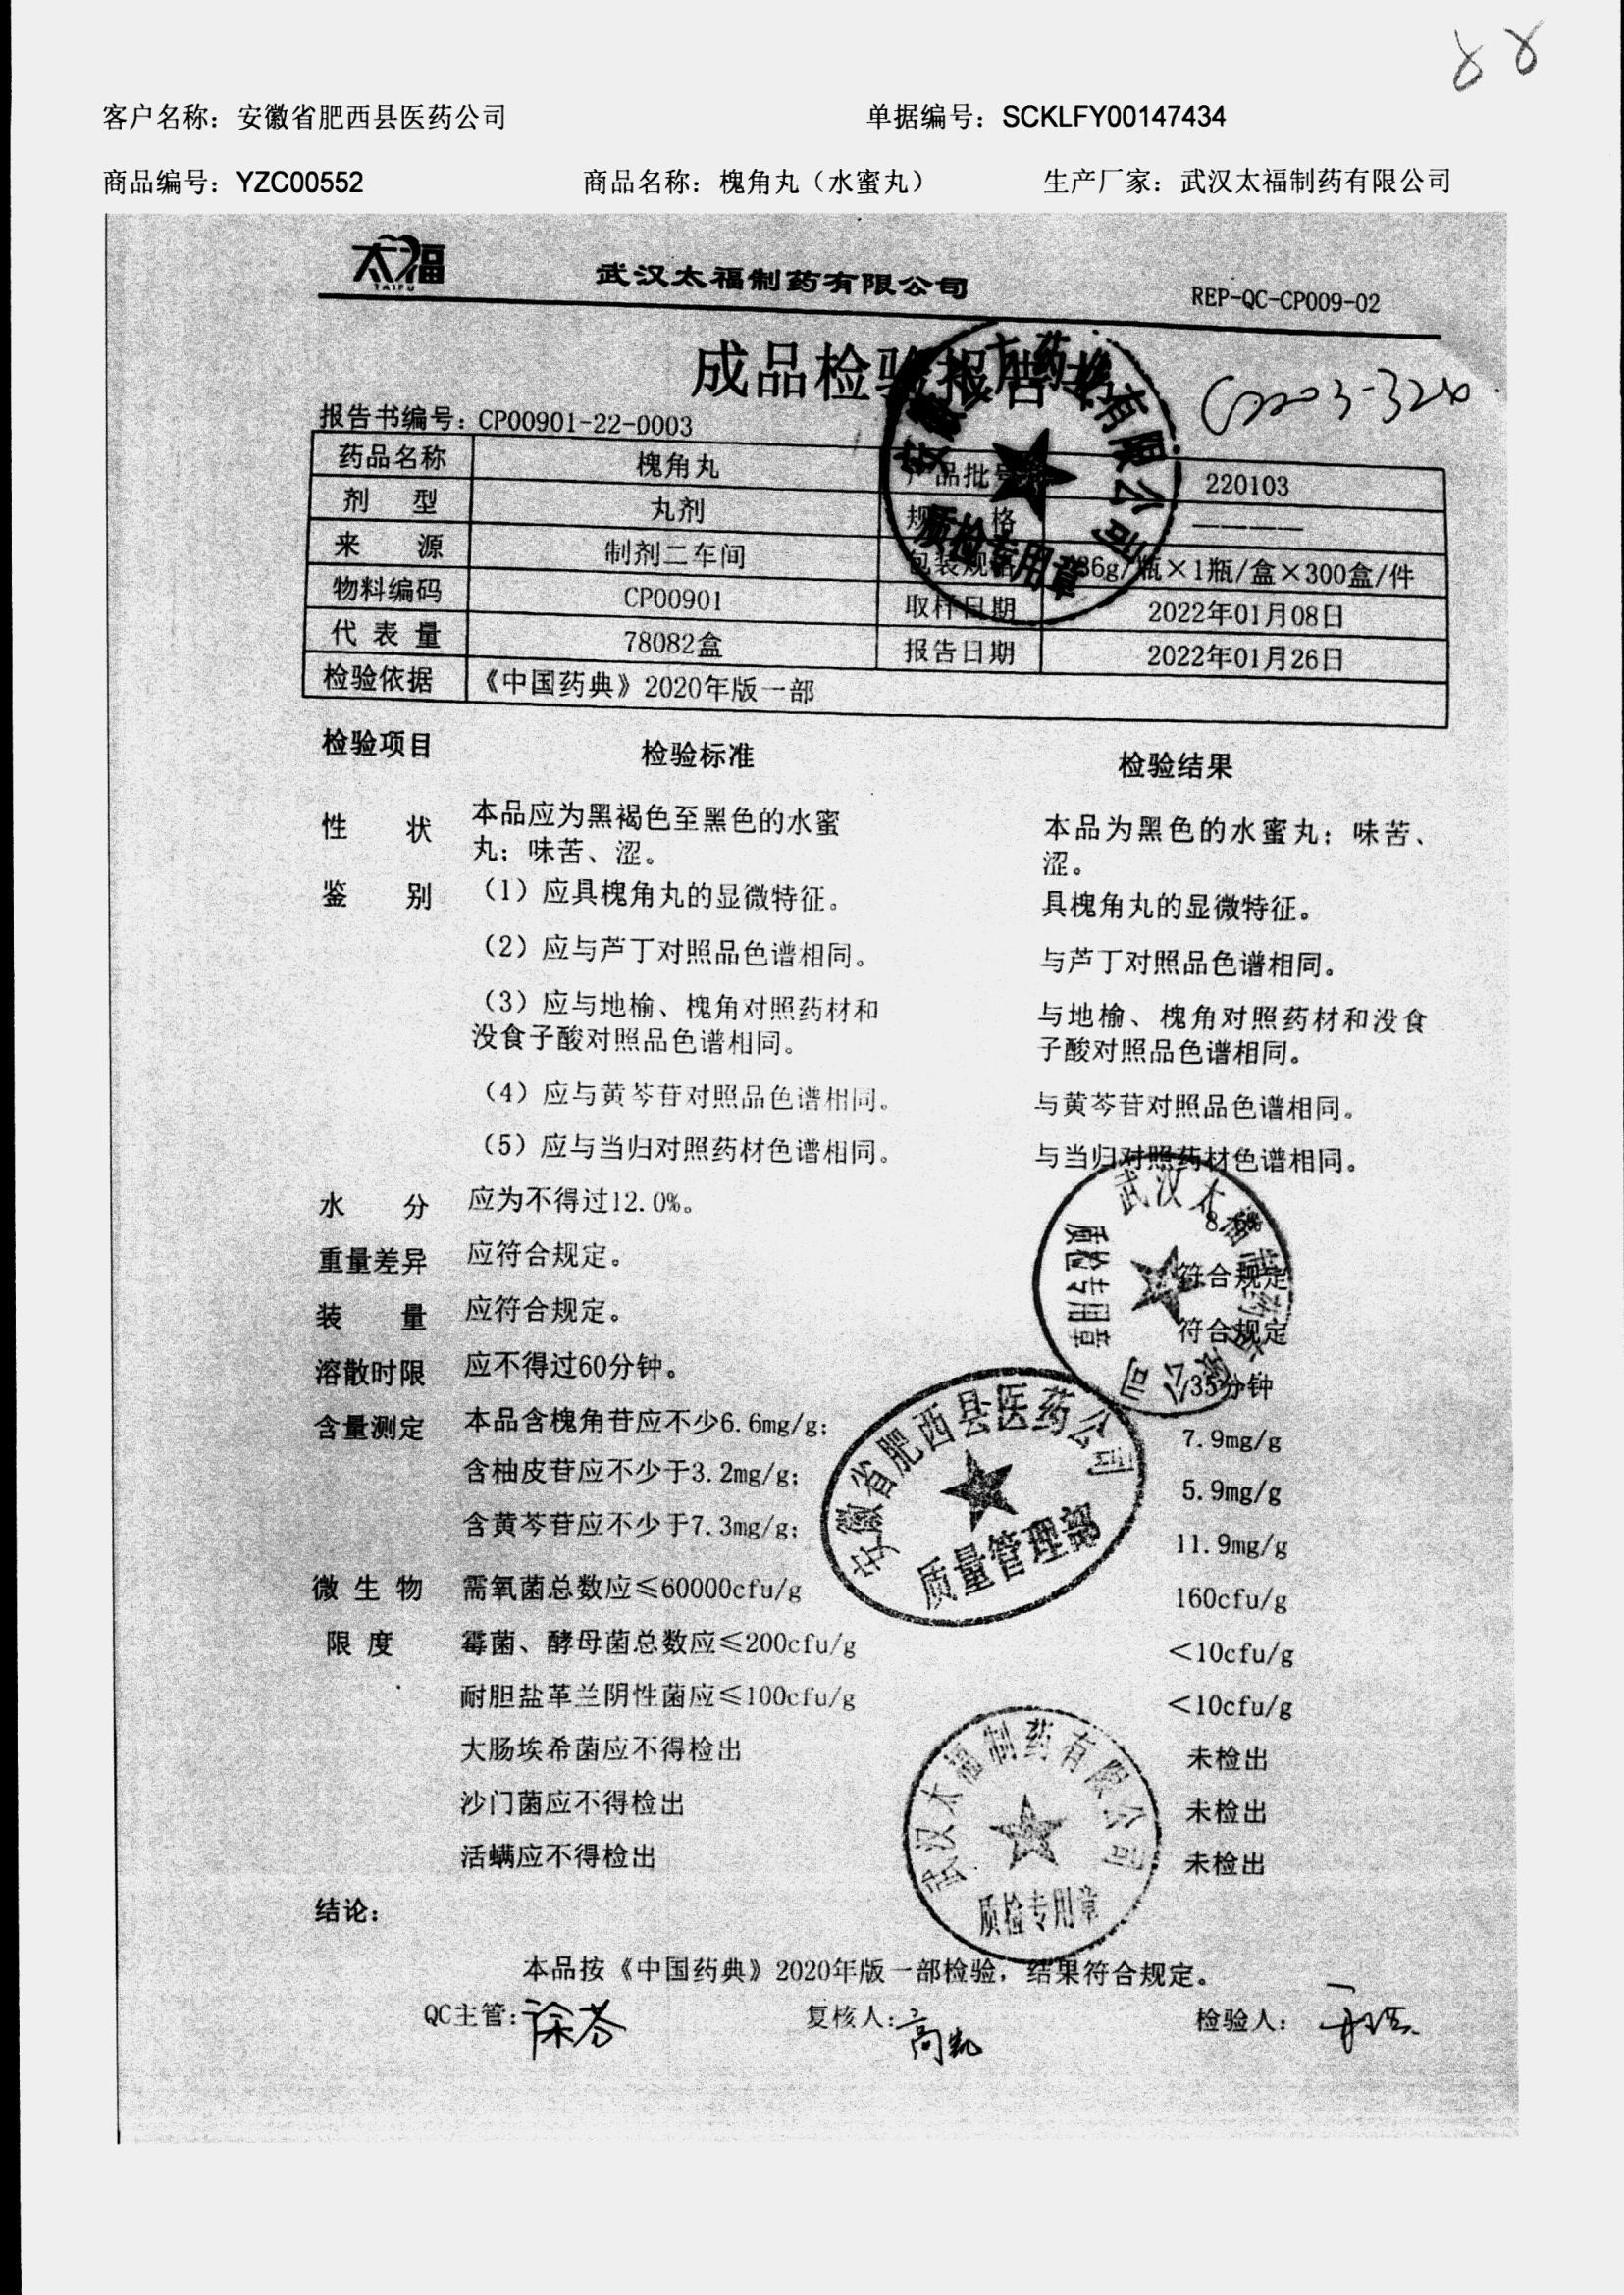 客户名称：安徽省肥西县医药公司 单据编号：SCKLFY00147434
商品编号：YZC00552 商品名称：槐角丸（水蜜丸） 生产厂家：武汉太福制药有限公司
太福 TAIFU 武汉太福制药有限公司 REP-QC-CP009-02
成品检验报告书
报告书编号：CP00901-22-0003
药品名称 槐角丸 产品批号 220103
剂 型 丸剂 规 格 ————
来 源 制剂二车间 包装规格 36g/瓶×1瓶/盒×300盒/件
物料编码 CP00901 取样日期 2022年01月08日
代 表 量 78082盒 报告日期 2022年01月26日
检验依据 《中国药典》2020年版一部
检验项目 检验标准 检验结果
性 状 本品应为黑褐色至黑色的水蜜丸；味苦、涩。 本品为黑色的水蜜丸；味苦、涩。
鉴 别 （1）应具槐角丸的显微特征。 具槐角丸的显微特征。
（2）应与芦丁对照品色谱相同。 与芦丁对照品色谱相同。
（3）应与地榆、槐角对照药材和没食子酸对照品色谱相同。 与地榆、槐角对照药材和没食子酸对照品色谱相同。
（4）应与黄芩苷对照品色谱相同。 与黄芩苷对照品色谱相同。
（5）应与当归对照药材色谱相同。 与当归对照药材色谱相同。
水 分 应为不得过12.0%。
重量差异 应符合规定。 符合规定
装 量 应符合规定。 符合规定
溶散时限 应不得过60分钟。 35分钟
含量测定 本品含槐角苷应不少6.6mg/g； 7.9mg/g
含柚皮苷应不少于3.2mg/g； 5.9mg/g
含黄芩苷应不少于7.3mg/g； 11.9mg/g
微 生 物 需氧菌总数应≤60000cfu/g 160cfu/g
限 度 霉菌、酵母菌总数应≤200cfu/g <10cfu/g
耐胆盐革兰阴性菌应≤100cfu/g <10cfu/g
大肠埃希菌应不得检出 未检出
沙门菌应不得检出 未检出
活螨应不得检出 未检出
结论：
本品按《中国药典》2020年版一部检验，结果符合规定。
QC主管： 复核人：高凯 检验人：
质检专用章
武汉太福制药有限公司 质检专用章
安徽省肥西县医药公司 质量管理部
武汉太福制药有限公司 质检专用章